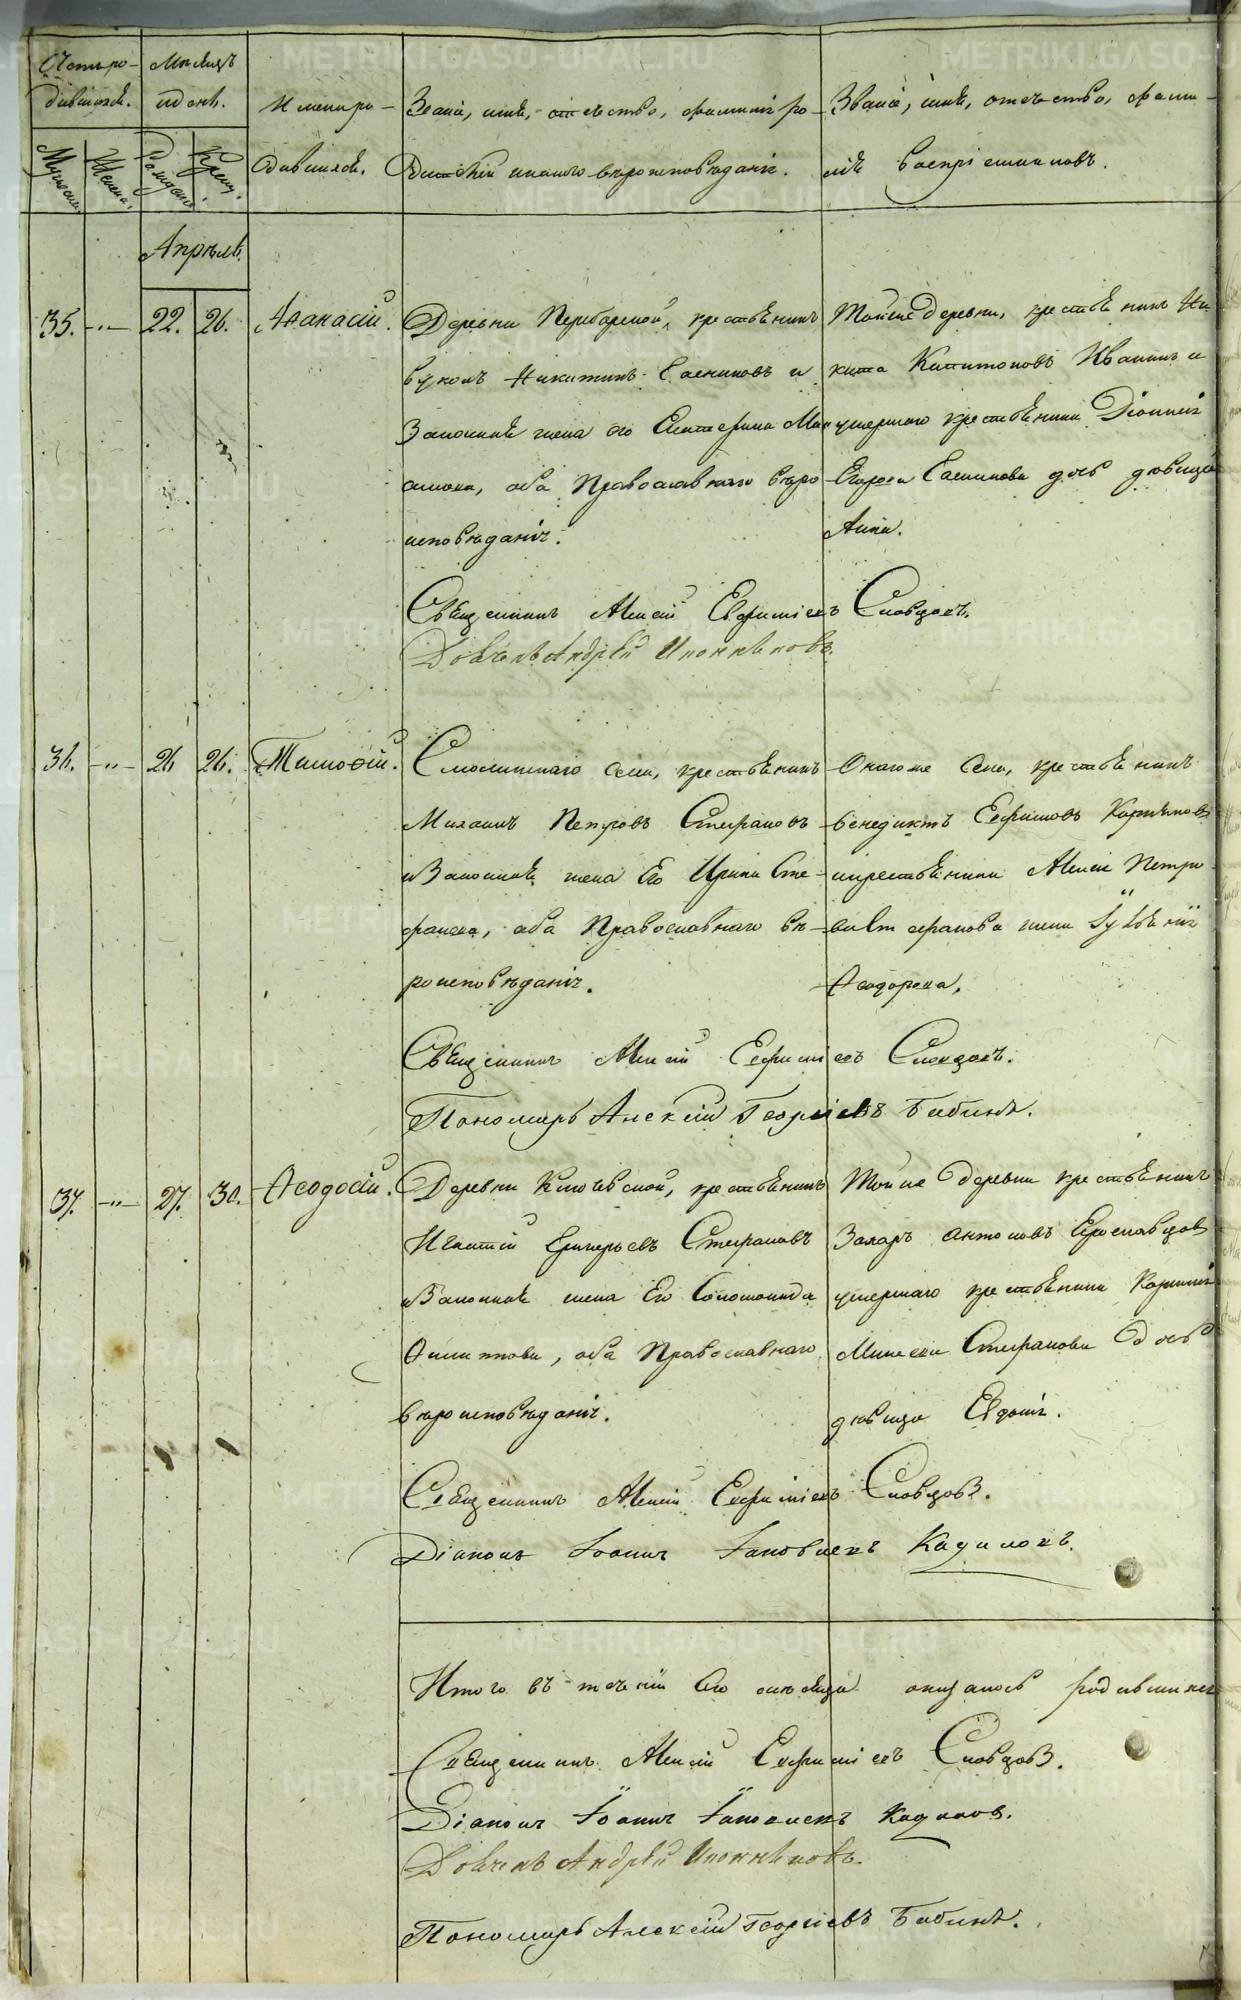 Счетъ ро-
дившихся.
Мѣсяцъ
и день.
Имена ро-
дившихся.
Званіе, имя, отчество, фамилія ро-
дителей и какого вѣроисповѣданія.
Званіе, имя, отчество, фами-
лія воспріемниковъ.
Мужеска.
Женска.
Рожденія.
Крещ.
Апрѣля.
35. -"- 22. 26. Аѳанасій.
Деревни крестьянинъ
Никитинъ и
Законная жена его Екатерина
оба Православнаго вѣро
исповѣданія.
Тойже деревни, крестьянинъ Ни-
кита Капитоновъ Иванинъ и
умершаго крестьянина Діонисія
Егорова дочь дѣвица
Анна.
Священникъ Алексій Евфиміевъ Словцовъ.
Дьячекъ Андрей
36. -"- 26. 26. Тимоѳій.
Смолинскаго села, крестьянинъ
Михаилъ Петровъ Стефановъ
и Законная жена Его Ирина Сте-
фанова, оба Православнаго вѣ-
роисповѣданія.
Онагоже села, крестьянинъ
Венедиктъ Евфимовъ
и крестьянина Алексія Петро-
ва Стефанова жена
Ѳеодорова.
Священникъ Алексій Евфиміевъ Словцовъ.
Пономарь Алексій Георгіевъ Бабинъ.
37. -"- 27. 30. Ѳеодосій.
Деревни Ключевской, крестьянинъ
Игнатій Григорьевъ Стефановъ
и Законная жена Его Соломонида
оба Православнаго
вѣроисповѣданія.
Тойже деревни крестьянинъ
Захаръ Антоновъ Ерославцовъ
умершаго крестьянина
Стефанова дочь
дѣвица Евдокія.
Священникъ Алексій Евфиміевъ Словцовъ.
Діаконъ Іоаннъ Іаковлевъ Кадиловъ.
Итого въ теченіи сего мѣсяца оказалось родившихся
Священникъ Алексій Евфиміевъ Словцовъ.
Діаконъ Іоаннъ Іаковлевъ Кадиловъ.
Дьячекъ Андрей
Пономарь Алексій Георгіевъ Бабинъ.
METRIKI.GASO-URAL.RU